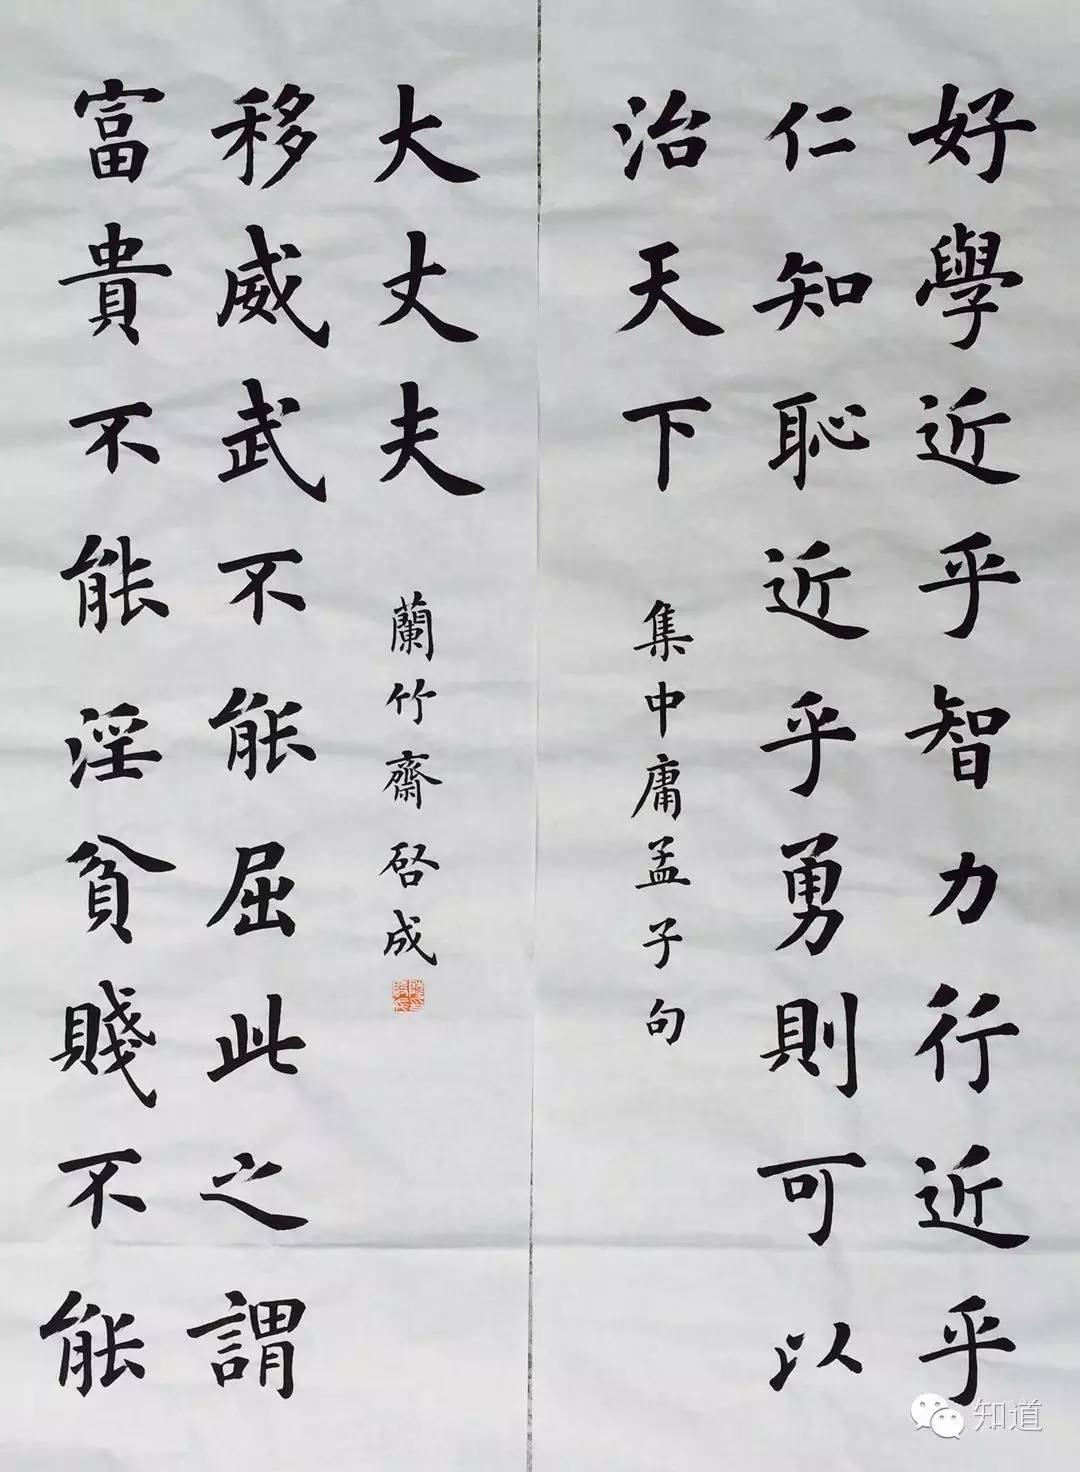 好學近乎智力行近乎
仁知恥近乎勇則可以
治天下
集中庸孟子句
富貴不能淫貧賤不能
移威武不能屈此之謂
大丈夫
蘭竹齋啓成
知道